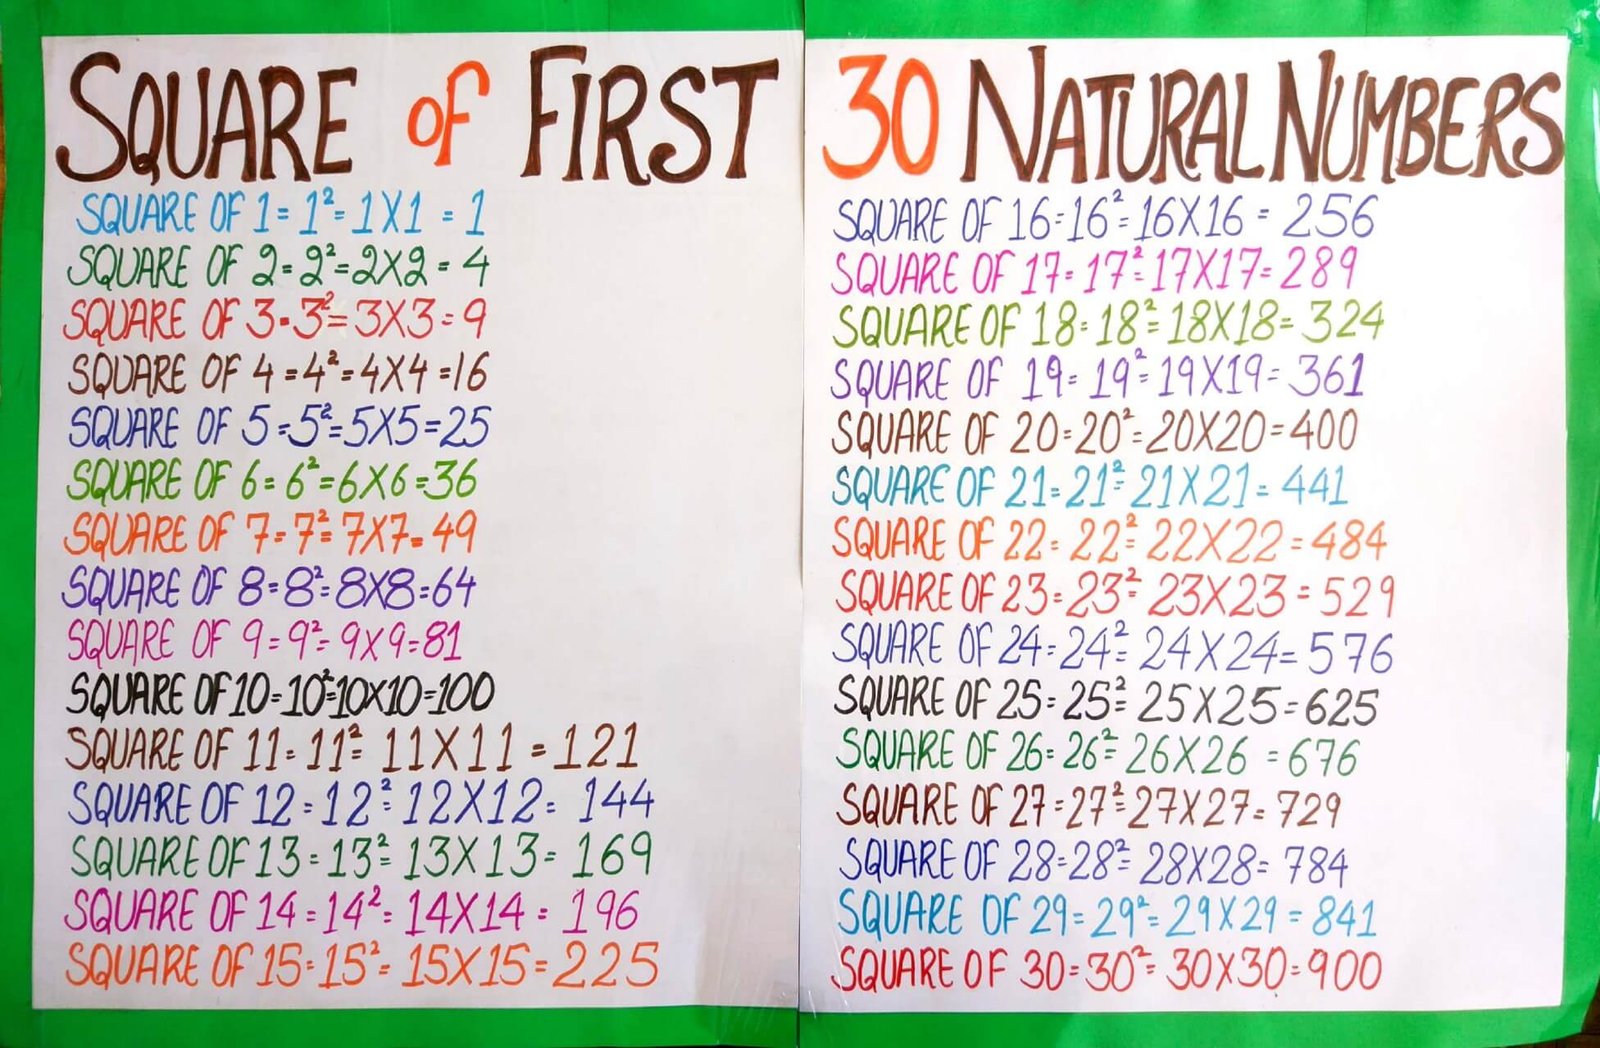 SQUARE OF FIRST
SQUARE OF 1 = 1² = 1X1 = 1
SQUARE OF 2 = 2² = 2X2 = 4
SQUARE OF 3 = 3² = 3X3 = 9
SQUARE OF 4 = 4² = 4X4 = 16
SQUARE OF 5 = 5² = 5X5 = 25
SQUARE OF 6 = 6² = 6X6 = 36
SQUARE OF 7 = 7² = 7X7 = 49
SQUARE OF 8 = 8² = 8X8 = 64
SQUARE OF 9 = 9² = 9X9 = 81
SQUARE OF 10 = 10² = 10X10 = 100
SQUARE OF 11 = 11² = 11X11 = 121
SQUARE OF 12 = 12² = 12X12 = 144
SQUARE OF 13 = 13² = 13X13 = 169
SQUARE OF 14 = 14² = 14X14 = 196
SQUARE OF 15 = 15² = 15X15 = 225
30 NATURAL NUMBERS
SQUARE OF 16 = 16² = 16X16 = 256
SQUARE OF 17 = 17² = 17X17 = 289
SQUARE OF 18 = 18² = 18X18 = 324
SQUARE OF 19 = 19² = 19X19 = 361
SQUARE OF 20 = 20² = 20X20 = 400
SQUARE OF 21 = 21² = 21X21 = 441
SQUARE OF 22 = 22² = 22X22 = 484
SQUARE OF 23 = 23² = 23X23 = 529
SQUARE OF 24 = 24² = 24X24 = 576
SQUARE OF 25 = 25² = 25X25 = 625
SQUARE OF 26 = 26² = 26X26 = 676
SQUARE OF 27 = 27² = 27X27 = 729
SQUARE OF 28 = 28² = 28X28 = 784
SQUARE OF 29 = 29² = 29X29 = 841
SQUARE OF 30 = 30² = 30X30 = 900